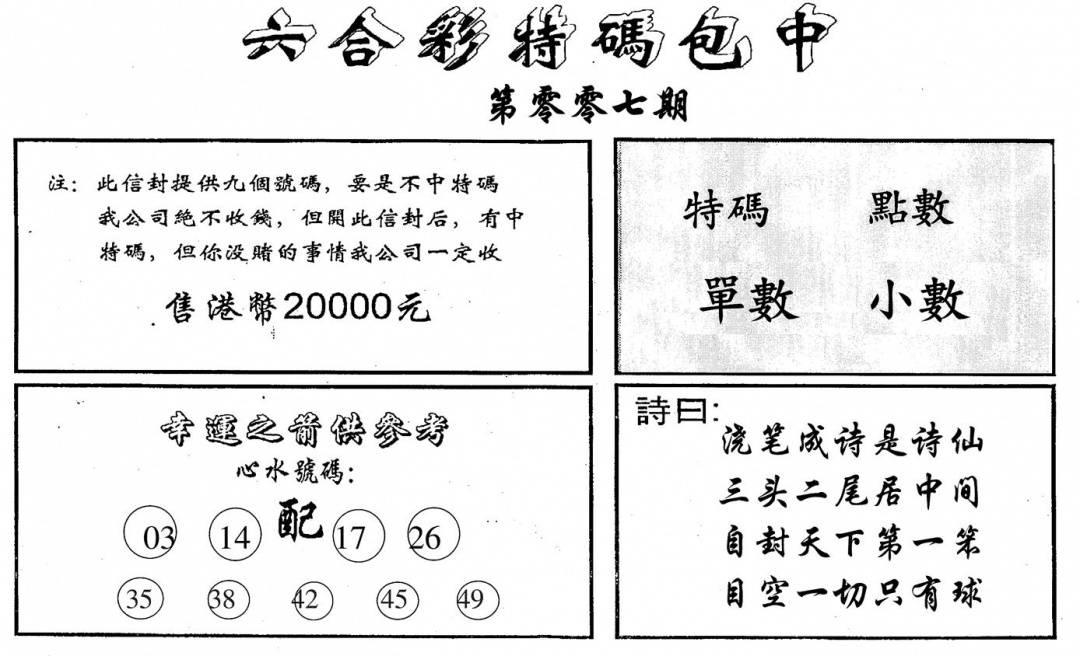 六合彩特碼包中
第零零七期
注：此信封提供九個號碼，要是不中特碼
我公司絕不收錢，但開此信封后，有中
特碼，但你没賭的事情我公司一定收
售港幣20000元
特碼 點數
單數 小數
幸運之箭供參考
心水號碼：
03 14 配 17 26
35 38 42 45 49
詩曰:
浇笔成诗是诗仙
三头二尾居中间
自封天下第一笨
目空一切只有球